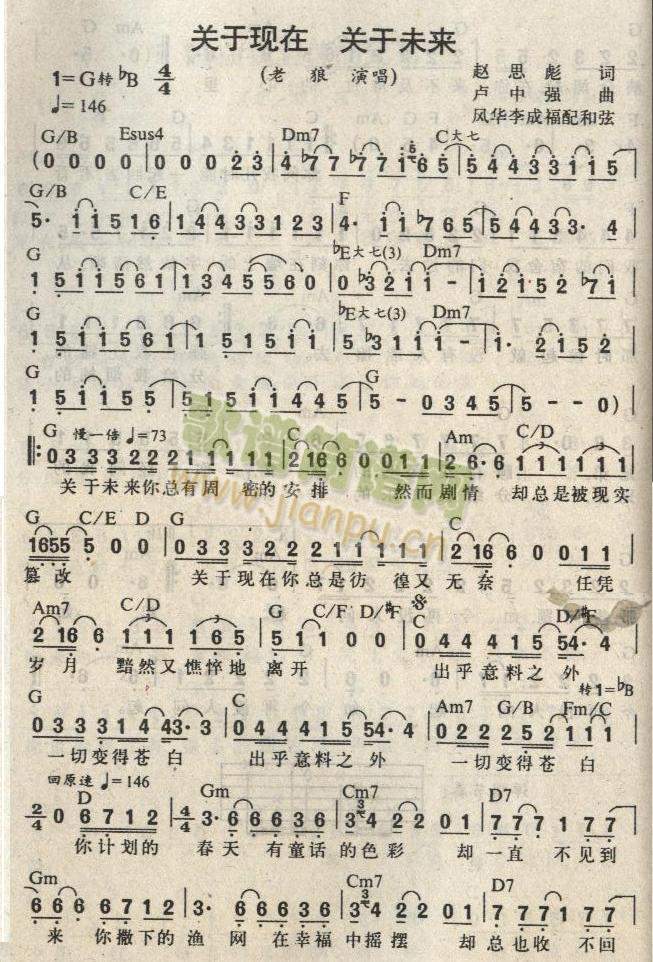 关于现在 关于未来
1=G转♭B 4/4 (老狼 演唱) 赵思彪 词
♩=146 卢中强 曲
风华李成福配和弦
G/B Esus4 Dm7 C大七
(0 0 0 0 | 0 0 0 2 3 | 4 ♭7 7 ♭7 7 i 6 5 | 5 4 4 3 3 1 1 5
G/B C/E F
5· 1 1 5 1 6 | 1 4 4 3 3 1 2 3 | 4· 1 1 ♭7 6 5 | 5 5 4 4 3 3· 4
G ♭E大七(3) Dm7
1 5 1 1 5 6 1 | 1 3 4 5 4 5 5 6 0 | 0 ♭3 2 1 1 - | 1 2 1 5 2 ♭7 1
G ♭E大七(3) Dm7
1 5 1 1 5 1 5 1 | 1 1 5 1 5 1 | 5 ♭3 1 1 1 - | 1· 2 1 5 2
G G
1 5 1 1 5 1 5 | 5 1 5 1 1 4 4 5 | 5 - 0 3 4 5 | 5 - - 0)
G 慢一倍 ♩=73 C Am C/D
0 3 3 3 2 2 2 1 1 1 1 1 | 2 1 6 6 0 0 1 1 | 2 6· 6 1 1 1 1 1 1
关于未来你总有周 密的安排 然而剧情 却总是被现实
G C/E D G C
1655 5 0 0 | 0 3 3 3 2 2 2 1 1 1 1 1 | 2 1 6 6 0 0 1 1
篡改 关于现在你总是彷 徨又无奈 任凭
Am7 C/D G C/F D/♯F C D/♯F
2 1 6 6 1 1 1 1 6 5 | 5 1 1 0 0 | 0 4 4 4 4 1 5 54· 4
岁月 黯然又憔悴地 离开 出乎意料之外
转1=♭B
G C Am7 G/B Fm/C
0 3 3 3 3 1 4 43· 3 | 0 4 4 4 4 1 5 54· 4 | 0 2 2 2 2 5 1 2 1 1
一切变得苍白 出乎意料之外 一切变得苍 白
回原速 ♩=146
D Gm Cm7 D7
2/4 0 6 7 1 2 | 4/4 3· 6 6 6 6 6 | 3 4 2 2 0 1 | 7 7 7 1 7 7
你计划的 春天 有童话 的色彩 却一直 不见到
Gm Cm7 D7
6 6 6 6 7 1 2 | 3· 6 6 6 3 6 | 3 4 2 2 0 1 | 7 7 7 7 1 7 7
来 你撒下的 渔 网 在幸福 中摇摆 却总也收 不回
歌谱简谱网
www.jianpu.cn